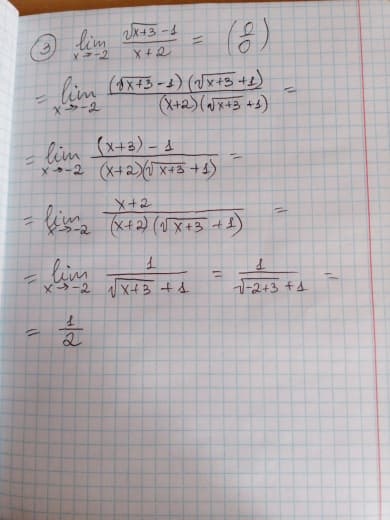 ③ lim x→-2 (√(x+3) - 1)/(x+2) = (0/0)
= lim x→-2 ((√(x+3) - 1)(√(x+3) + 1))/((x+2)(√(x+3) + 1)) =
= lim x→-2 ((x+3) - 1)/((x+2)(√(x+3) + 1)) =
= lim x→-2 (x+2)/((x+2)(√(x+3) + 1)) =
= lim x→-2 1/(√(x+3) + 1) = 1/(√(-2+3) + 1) =
= 1/2